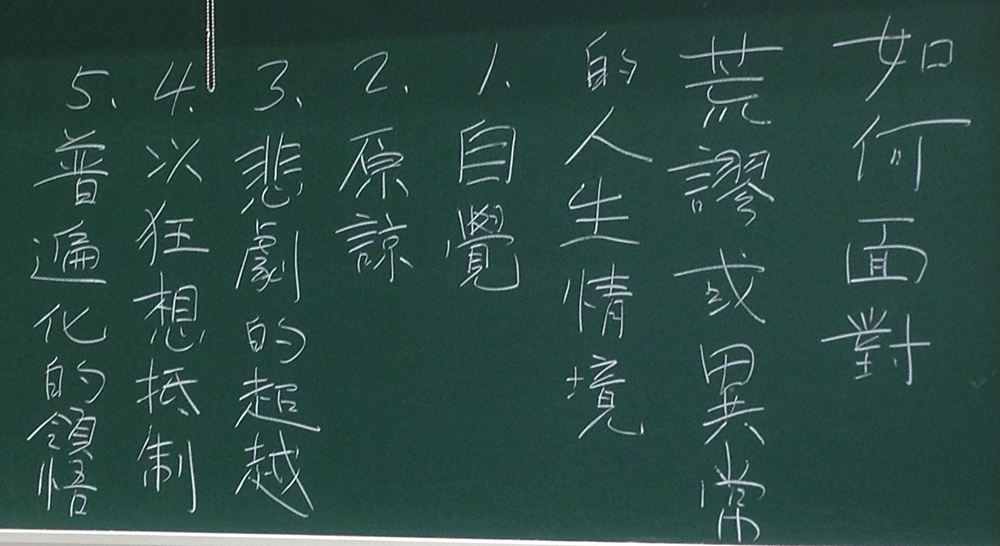 如何面對
荒謬或異常
的人生情境
1.自覺
2.原諒
3.悲劇的超越
4.以狂想抵制
5.普遍化的領悟